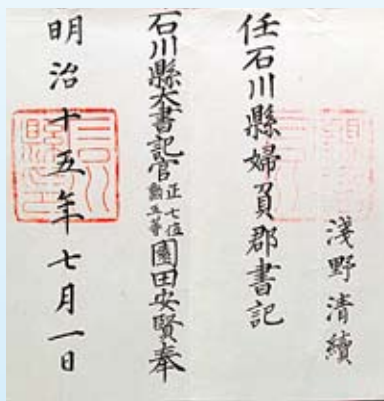 淺野清績
任石川縣婦負郡書記
石川縣大書記官正七位勳五等園田安賢奉
明治十五年七月一日